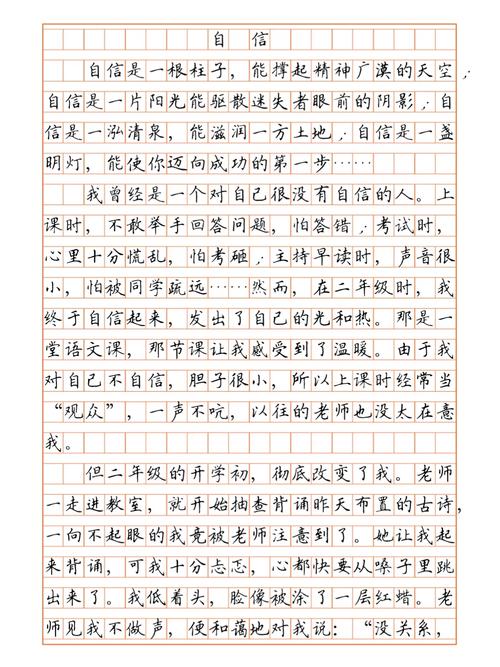 自信
自信是一根柱子，能撑起精神广漠的天空；
自信是一片阳光能驱散迷失者眼前的阴影；自
信是一泓清泉，能滋润一方土地；自信是一盏
明灯，能使你迈向成功的第一步……
我曾经是一个对自己很没有自信的人。上
课时，不敢举手回答问题，怕答错；考试时，
心里十分慌乱，怕考砸；主持早读时，声音很
小，怕被同学疏远……然而，在二年级时，我
终于自信起来，发出了自己的光和热。那是一
堂语文课，那节课让我感受到了温暖。由于我
对自己不自信，胆子很小，所以上课时经常当
“观众”，一声不吭，以往的老师也没太在意
我。
但二年级的开学初，彻底改变了我。老师
一走进教室，就开始抽查背诵昨天布置的古诗，
一向不起眼的我竟被老师注意到了。她让我起
来背诵，可我十分忐忑，心都快要从嗓子里跳
出来了。我低着头，脸像被涂了一层红蜡。老
师见我不做声，便和蔼地对我说：“没关系，